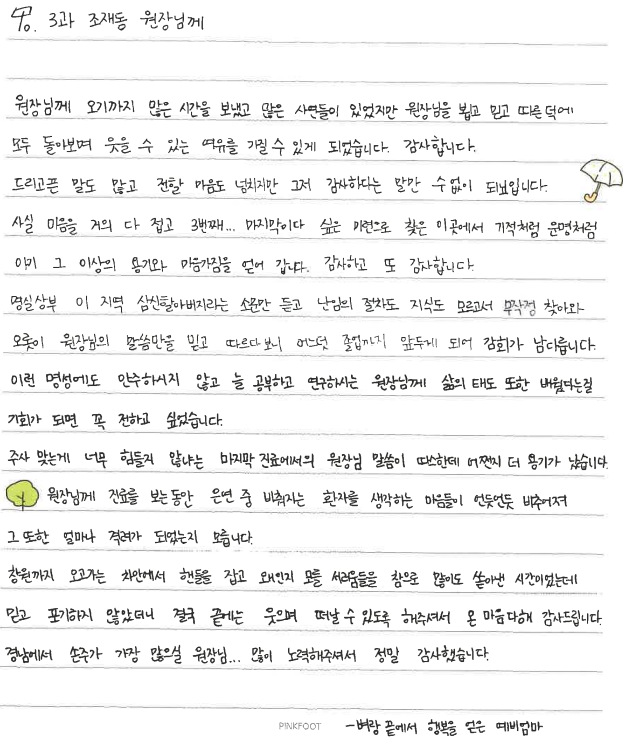 3과 조재동 원장님께
원장님께 오기까지 많은 시간을 보냈고 많은 사연들이 있었지만 원장님을 뵙고 믿고 따른 덕에
모두 돌아보며 웃을 수 있는 여유를 가질 수 있게 되었습니다. 감사합니다.
드리고픈 말도 많고 전할 마음도 넘치지만 그저 감사하다는 말만 수없이 되뇌입니다.
사실 마음을 거의 다 접고 3번째... 마지막이다 싶은 미련으로 찾은 이곳에서 기적처럼 운명처럼
아기 그 이상의 용기와 마음가짐을 얻어 갑니다. 감사하고 또 감사합니다.
명실상부 이 지역 삼신할아버지라는 소문만 듣고 난임의 절차도 지식도 모르고서 무작정 찾아와
오롯이 원장님의 말씀만을 믿고 따르다보니 어느덧 졸업까지 앞두게 되어 감회가 남다릅니다.
이런 명성에도 안주하시지 않고 늘 공부하고 연구하시는 원장님께 삶의 태도 또한 배웠다는걸
기회가 되면 꼭 전하고 싶었습니다.
주사 맞는게 너무 힘들지 않냐는 마지막 진료에서의 원장님 말씀이 따스한데 어쩐지 더 용기가 났습니다.
원장님께 진료를 보는동안 은연 중 비춰지는 환자를 생각하는 마음들이 언뜻언뜻 비추어져
그 또한 얼마나 격려가 되었는지 모릅니다.
창원까지 오고가는 차안에서 핸들을 잡고 왜인지 모를 서러움들을 참으로 많이도 쏟아낸 시간이었는데
믿고 포기하지 않았더니 결국 끝에는 웃으며 떠날 수 있도록 해주셔서 온 마음다해 감사드립니다.
경남에서 손주가 가장 많으실 원장님... 많이 노력해주셔서 정말 감사했습니다.
PINKFOOT
-벼랑 끝에서 행복을 얻은 예비엄마